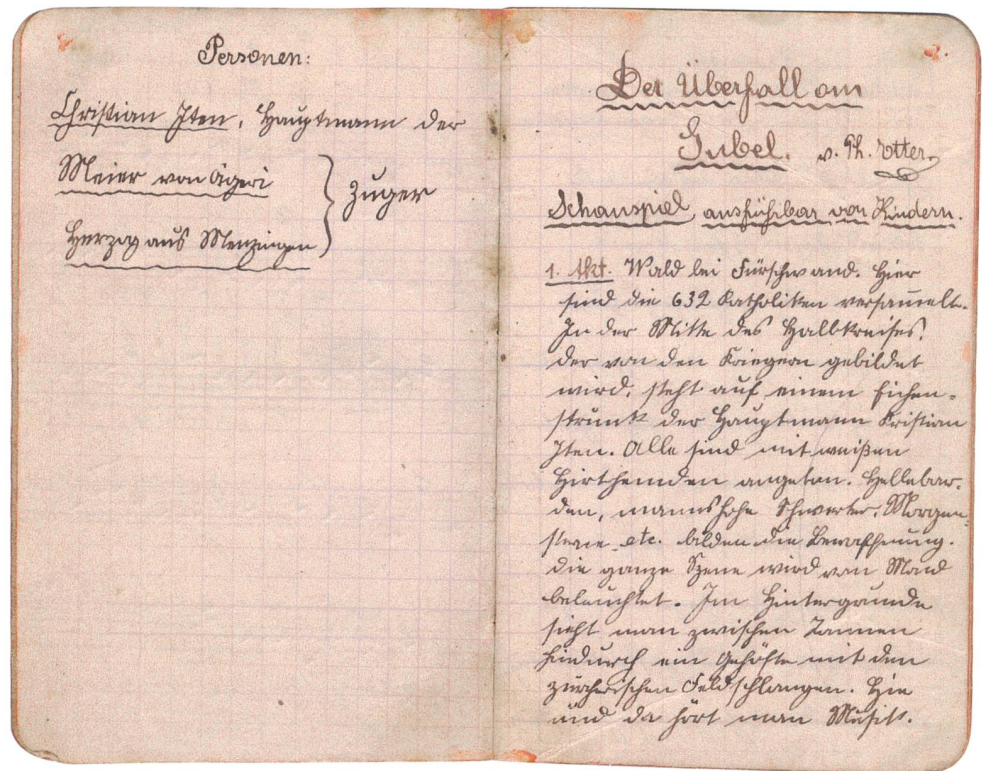 Personen:
Christian Iten, Hauptmann der
Meier von Ägeri
Herzog aus Menzingen
} Zuger
Der Überfall am
Gubel. v. Ph. Etter.
Schauspiel, ausführbar von Kindern.
1. Akt. Wald bei Fürschwand. Hier
sind die 632 Katholiken versam̅elt.
In der Mitte des Halbkreises,
der von den Kriegern gebildet
wird, steht auf einem Eichen-
strunk der Hauptmann Kristian
Iten. Alle sind mit weißen
Hirthemden angetan. Hellebar-
den, mannshohe Schwerter, Morgen-
sterne etc. bilden die Bewaffnung.
Die ganze Szene wird von Mond
beleuchtet. Im Hintergrunde
sieht man zwischen Tannen
hindurch ein Gehöfte mit den
zürcherischen Feldschlangen. Hie
und da hört man Musik.